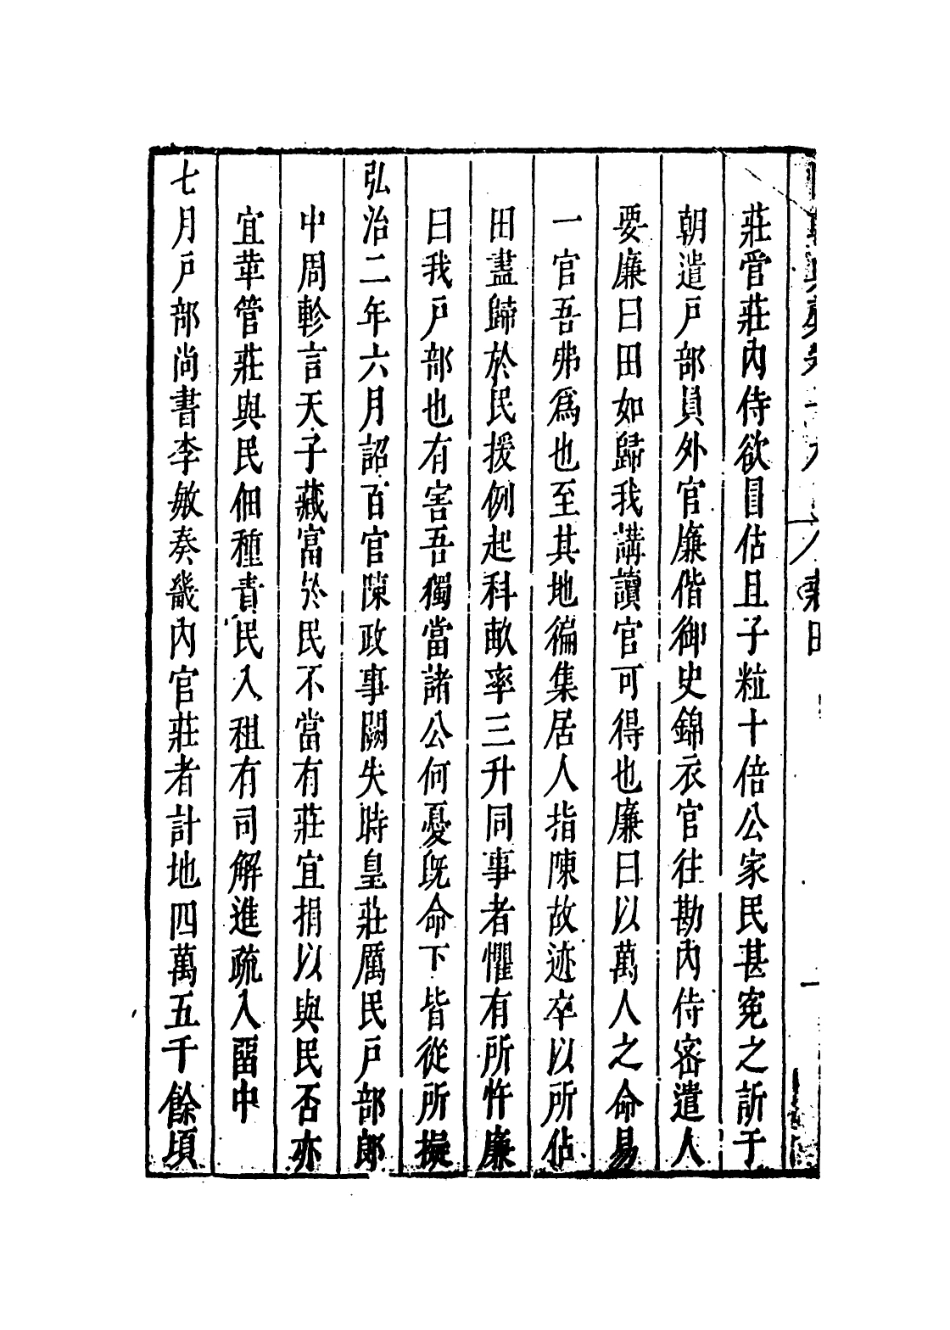 莊管莊內侍欲冒佔且子粒十倍公家民甚寃之訴于
朝遣戶部員外官廉偕御史錦衣官往勘內侍密遣人
要廉曰田如歸我講讀官可得也廉曰以萬人之命易
一官吾弗爲也至其地徧集居人指陳故迹卒以所佔
田盡歸於民援例起科畝率三升同事者懼有所忤廉
曰我戶部也有害吾獨當諸公何憂旣命下皆從所擬
弘治二年六月詔百官陳政事闕失時皇莊厲民戶部郎
中周軫言天子藏富於民不當有莊宜捐以與民否亦
宜革管莊與民佃種責民入租有司解進疏入畱中
七月戶部尚書李敏奏畿內官莊者計地四萬五千餘頃